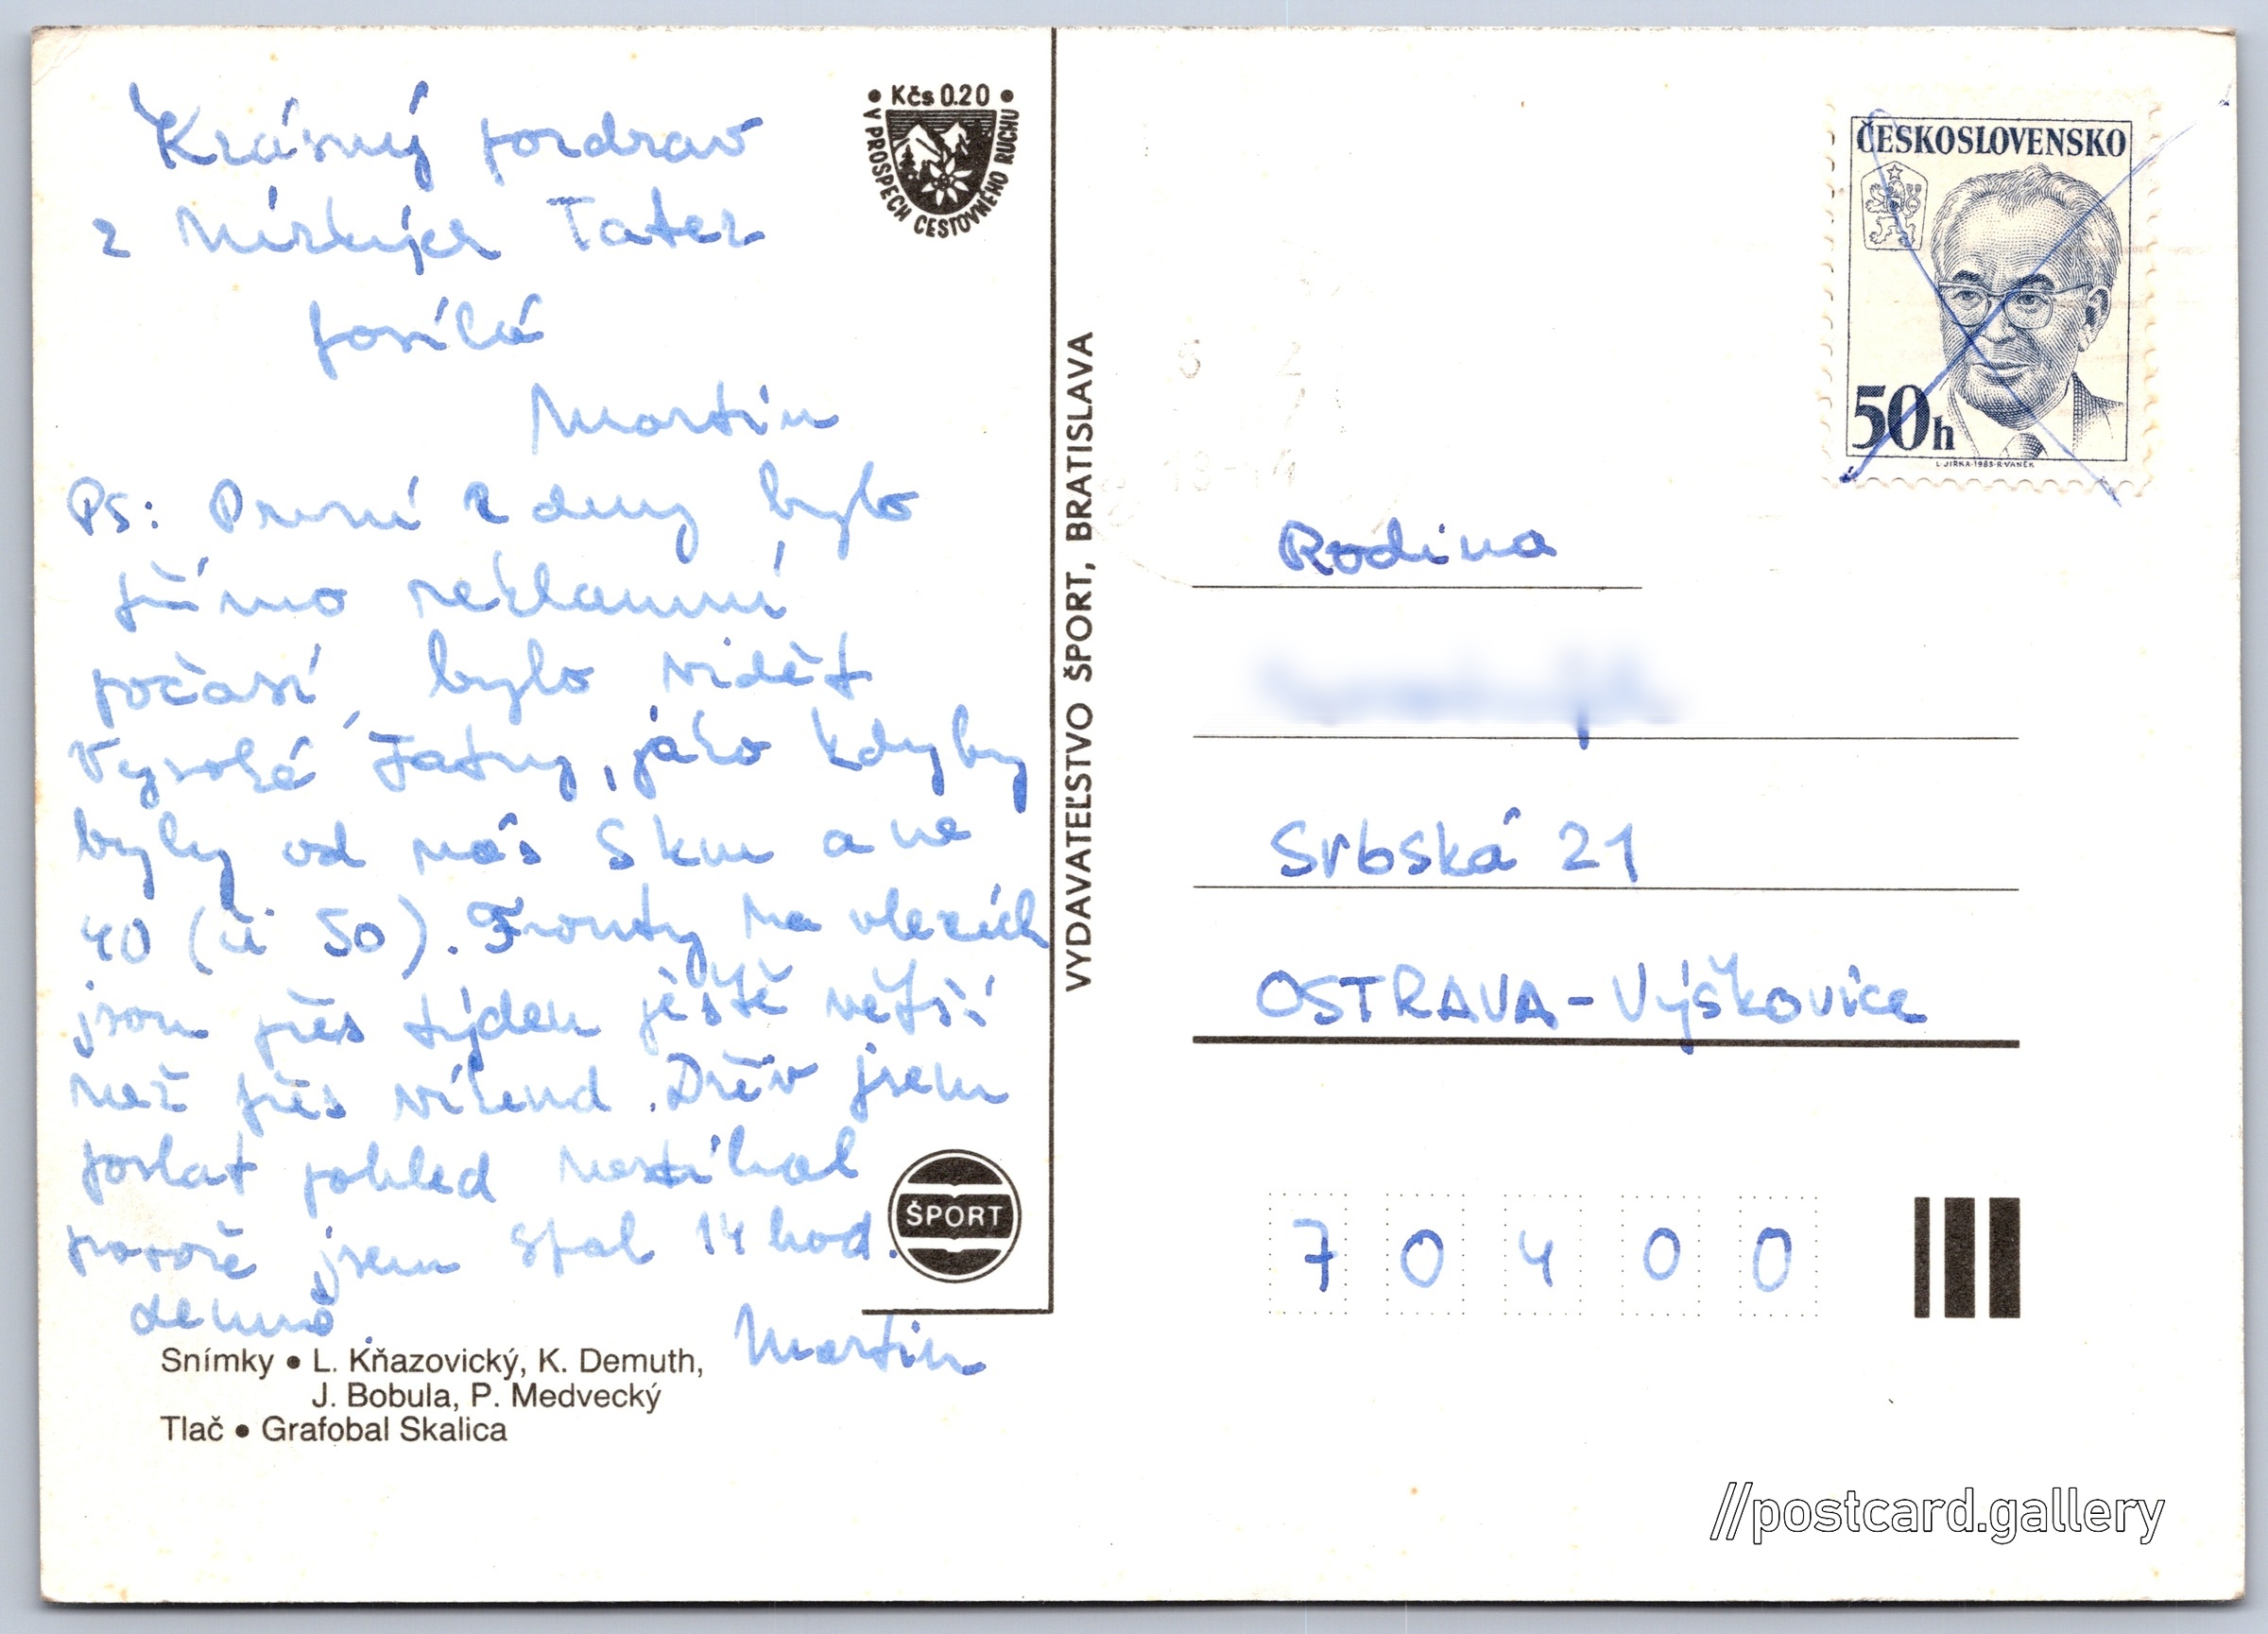 Krásný pozdrav
z Nízkých Tater
posílá
Martin
Ps: První 2 dny bylo
přímo reklamní
počasí, bylo vidět
Vysoké Tatry, jako kdyby
byly od nás 5 km a ne
40 (či 50). Fronty na vlecích
jsou přes týden ještě větší
než přes víkend. Dřív jsem
poslat pohled nestíhal
protože jsem spal 14 hod.
denně.
Martin
Snímky • L. Kňazovický, K. Demuth,
J. Bobula, P. Medvecký
Tlač • Grafobal Skalica
• Kčs 0.20 •
V PROSPECH CESTOVNÉHO RUCHU
ŠPORT
VYDAVATEĽSTVO ŠPORT, BRATISLAVA
ČESKOSLOVENSKO
50h
L. JIRKA-1983-R. VANĚK
13-14
Rodina
Srbská 21
OSTRAVA-Výškovice
7 0 4 0 0
//postcard.gallery